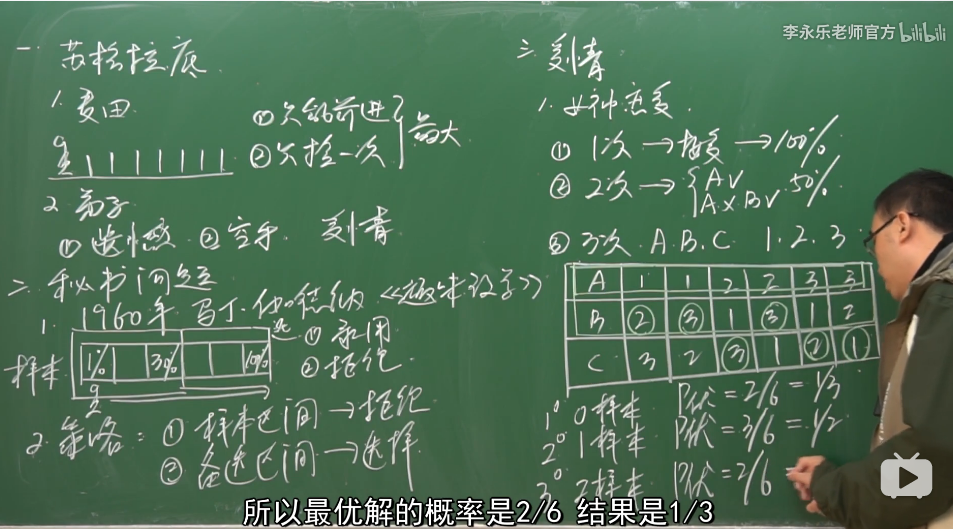 李永乐老师官方 bilibili
一. 苏格拉底
1. 麦田
① 只能前进
② 只捡一次
最大
2. 弟子
① 选小 ② 空手
二. 秘书问题
1960年 马丁·伽德纳《趣味数学》
1.
样本
1% 30% 100%
① 录用
② 拒绝
2. 策略: ① 样本区间→拒绝
② 备选区间→选择
三.
1. 女神恋爱
① 1次→接受→100%
② 2次→ A√ 50%
A× B√
③ 3次. A.B.C 1.2.3
A 1 1 2 2 3 3
B ② ③ 1 ③ 1 2
C 3 2 ③ 1 ② ①
1° 0样本 P优=2/6=1/3
2° 1样本 P优=3/6=1/2
3° 2样本 P优=2/6
所以最优解的概率是2/6 结果是1/3